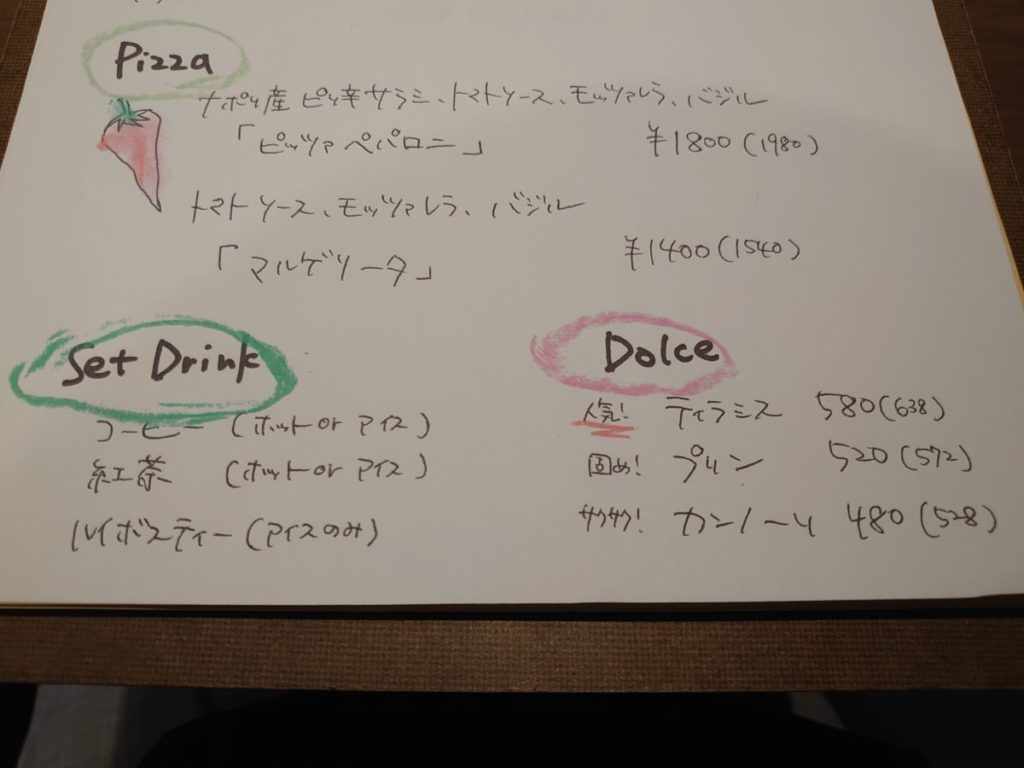 Pizza
ナポリ産ピリ辛サラミ、トマトソース、モッツァレラ、バジル
「ピッツァ ペパロニ」 ¥1800(1980)
トマトソース、モッツァレラ、バジル
「マルゲリータ」 ¥1400(1540)
Set Drink
コーヒー (ホット or アイス)
紅茶 (ホット or アイス)
ルイボスティー(アイスのみ)
Dolce
人気! ティラミス 580(638)
固め! プリン 520(572)
サクサク! カンノーリ 480(528)